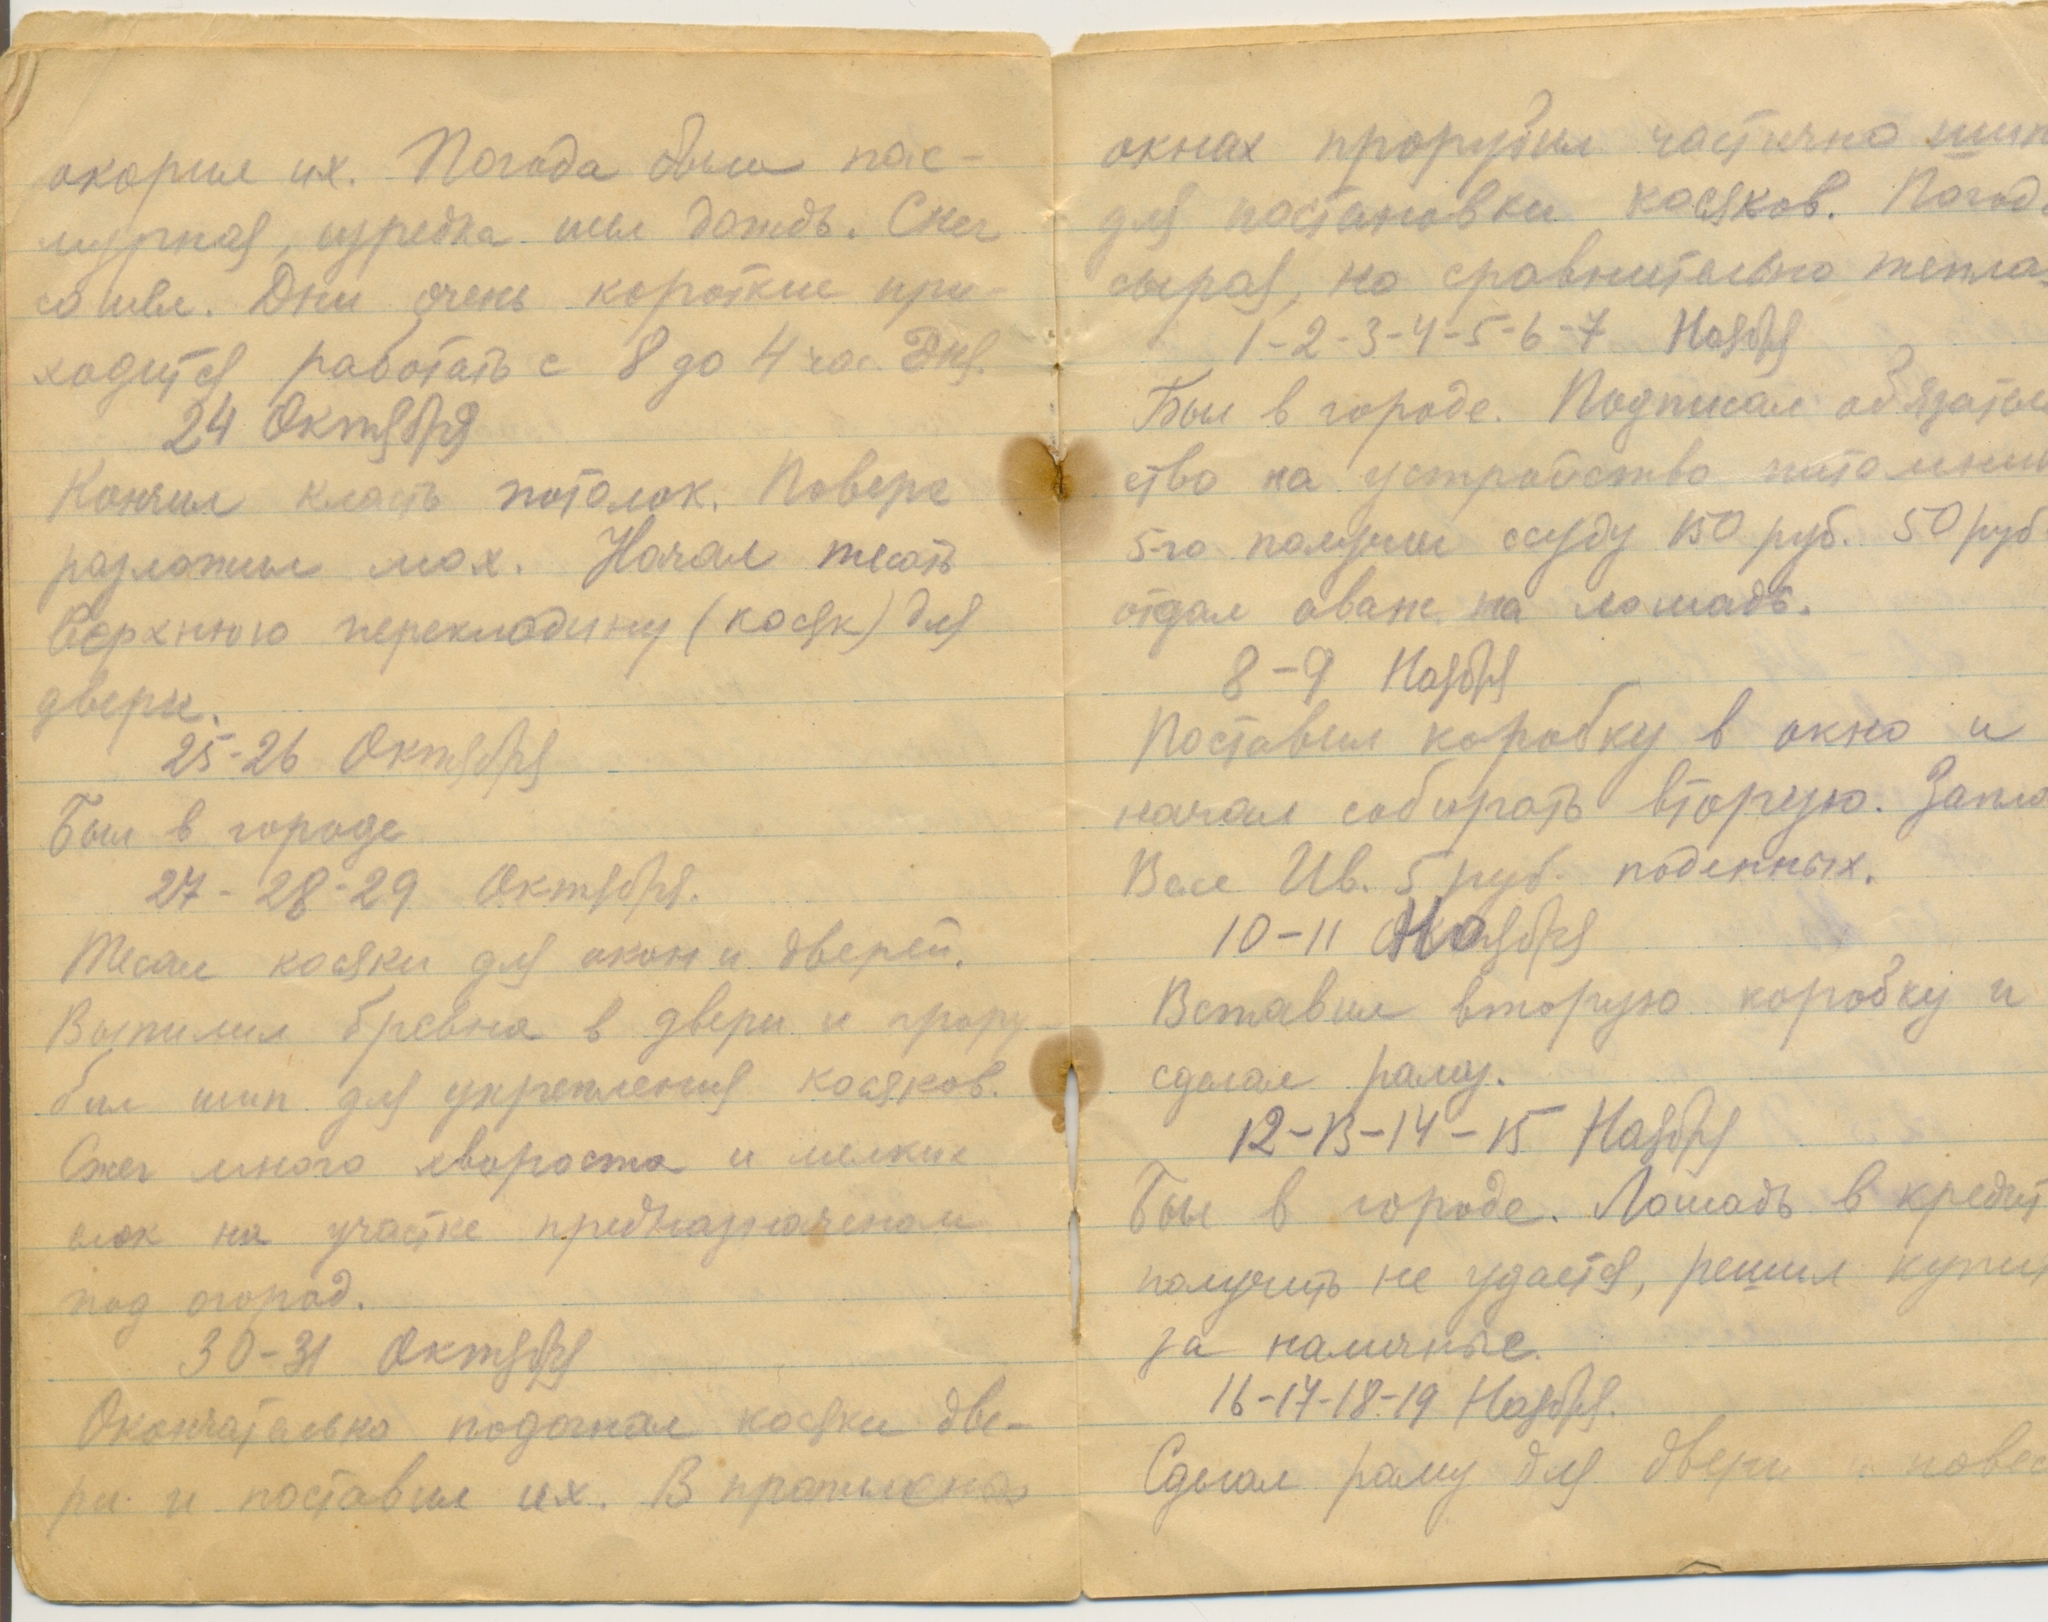 окорил их. Погода была пас-
мурная, изредка шел дождь. Снег
сошел. Дни очень короткие при-
ходится работать с 8 до 4 час. дня.
24 Октября
Кончил класть потолок. Поверх
разложил мох. Начал тесать
верхнюю перекладину (косяк) для
двери.
25-26 Октября
Был в городе
27-28-29 Октября.
Тесал косяки для окон и дверей.
Выпилил бревна в двери и прору-
бил шип для укрепления косяков.
Сжег много хвороста и мелких
на участке предназначеном
под огород.
30-31 Октября
Окончательно подогнал косяки две-
ри и поставил их. В
окнах прорубил частично шип
для постановки косяков. Погода
сырая, но сравнительно тепла
1-2-3-4-5-6-7 Ноября
Был в городе. Подписал обязатель
ство на устройство питомник
5-го получил ссуду 150 руб. 50 руб.
отдал аванс на лошадь.
8-9 Ноября
Поставил коробку в окно и
начал собирать вторую. Запла
Вас Ив. 5 руб. поденных.
10-11 Ноября
Вставил вторую коробку и
сделал раму.
12-13-14-15 Ноября
Был в городе. Лошадь в кредит
получить не удается, решил купит
за наличные.
16-17-18-19 Ноября.
Сделал раму для двери и повес